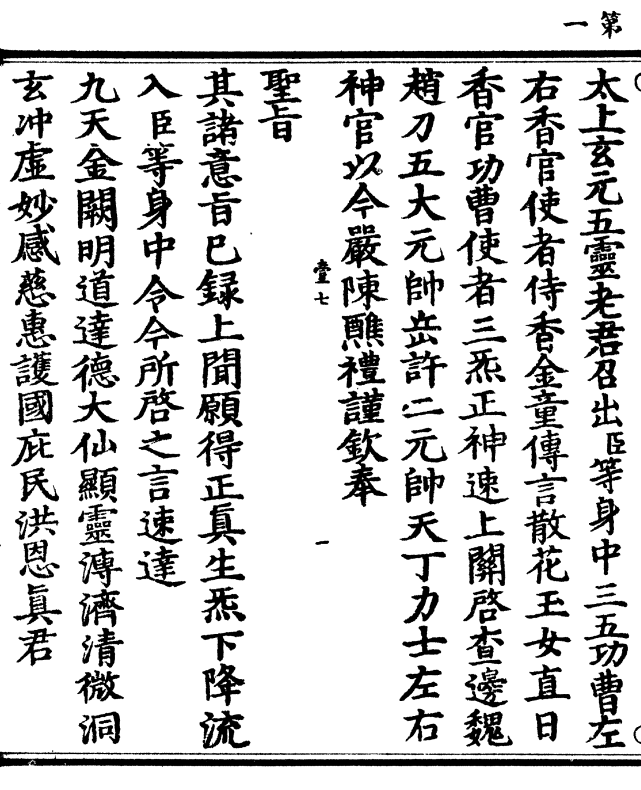 第一
太上玄元五靈老君召出臣等身中三五功曹左
右香官使者侍香金童傳言散花玉女直日
香官功曹使者三炁正神速上關啓查邊魏
趙刀五大元帥岳許二元帥天丁力士左右
神官以今嚴陳醮禮謹欽奉
壹七
一
聖旨
其諸意旨已録上聞願得正眞生炁下降流
入臣等身中令今所啓之言速達
九天金闕明道達德大仙顯靈溥濟清微洞
玄冲虛妙感慈惠護國庇民洪恩眞君